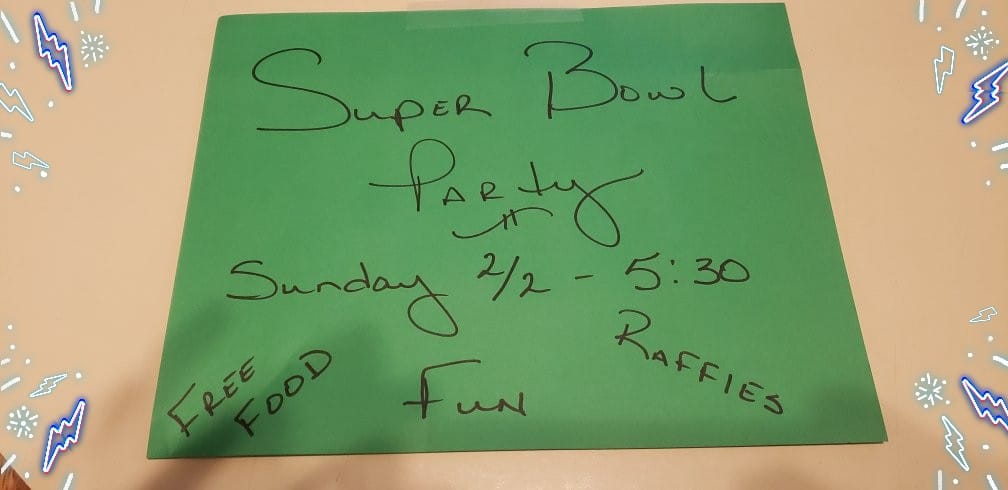 Super Bowl
Party
Sunday 2/2 - 5:30
RAFFlES
FREE
FOOD
Fun